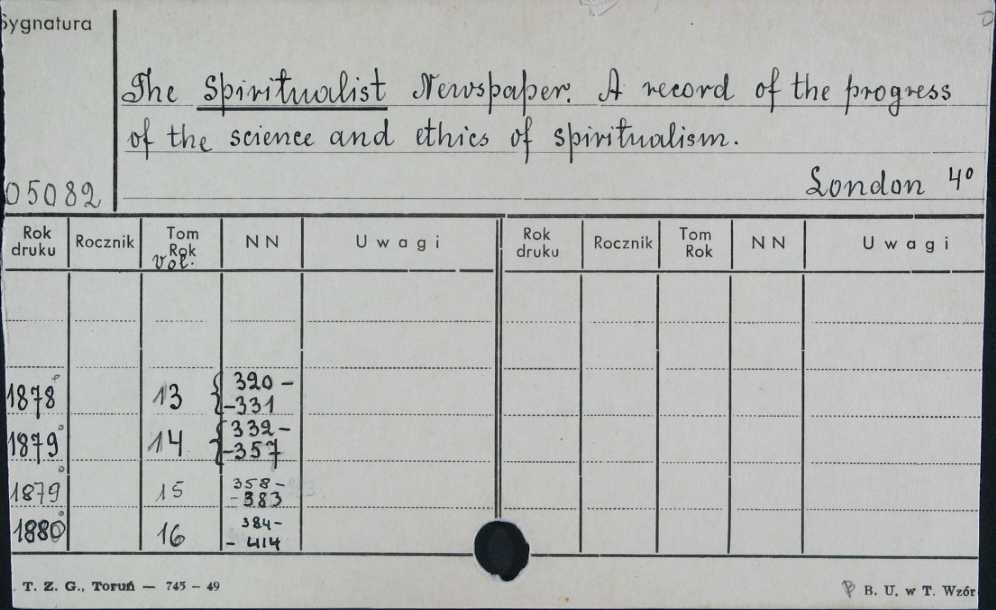 Sygnatura
The Spiritualist Newspaper. A record of the progress
of the science and ethics of spiritualism.
London 4°
05082
Rok druku Rocznik Tom Rok vol. NN Uwagi Rok druku Rocznik Tom Rok NN Uwagi
1878 13 320 –
– 331
1879 14 332 –
– 357
1879 15 358 –
– 383
1880 16 384 –
– 414
T. Z. G., Toruń — 745 – 49
B. U. w T. Wzór